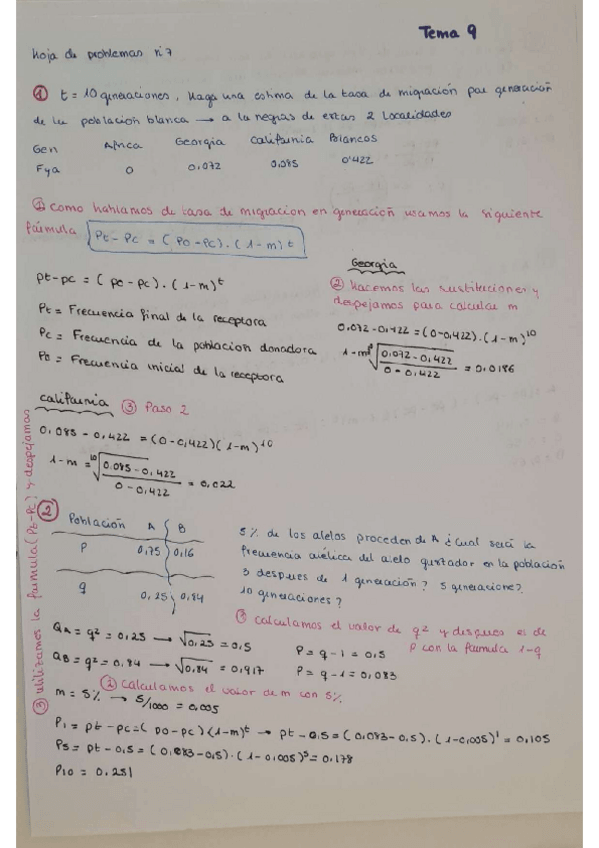 Tema 9
Hoja de problemas nº7
① t = 10 generaciones, Haga una estima de la tasa de migración por generación
de la población blanca → a la negras de estas 2 localidades
Gen Africa Georgia California Blancos
Fya 0 0,072 0,085 0'422
① como hablamos de tasa de migracion en generación usamos la siguiente
fórmula Pt - Pc = (Po - Pc) · (1-m)^t
pt-pc = (po-pc) · (1-m)^t
Pt = Frecuencia final de la receptora
Pc = Frecuencia de la poblacion donadora
Po = Frecuencia inicial de la receptora
Georgia
② hacemos las sustituciones y
despejamos para calcular m
0,072-0,422 = (0-0,422) · (1-m)^10
1-m = 10√(0,072-0,422 / 0-0,422) = 0,0186
California ③ Paso 2
0,085 - 0,422 = (0-0,422)(1-m)^10
1-m = 10√(0.085-0,422 / 0-0,422) = 0,022
②
Población A B
P 0,75 0,16
q 0,25 0,84
5% de los alelos proceden de A ¿cual será la
frecuencia alélica del alelo gustador en la población
3 despues de 1 generación? 5 generacione?
10 generaciones?
① calculamos el valor de q² y despues es de
P con la fórmula 1-q
QA = q² = 0,25 → √0,25 = 0,5 P = q-1 = 0,5
QB = q² = 0,84 → √0,84 = 0,917 P = q-1 = 0,083
② calculamos el valor de m con 5%
m = 5% → 5/1000 = 0,005
③ utilizamos la fórmula (Pt-Pc) y despejamos
P1 = pt - pc = (po-pc)(1-m)^t → pt - 0,5 = (0,083-0,5) · (1-0,005)^1 = 0,105
P5 = pt - 0,5 = (0,083-0,5) · (1-0,005)^5 = 0,178
P10 = 0,251